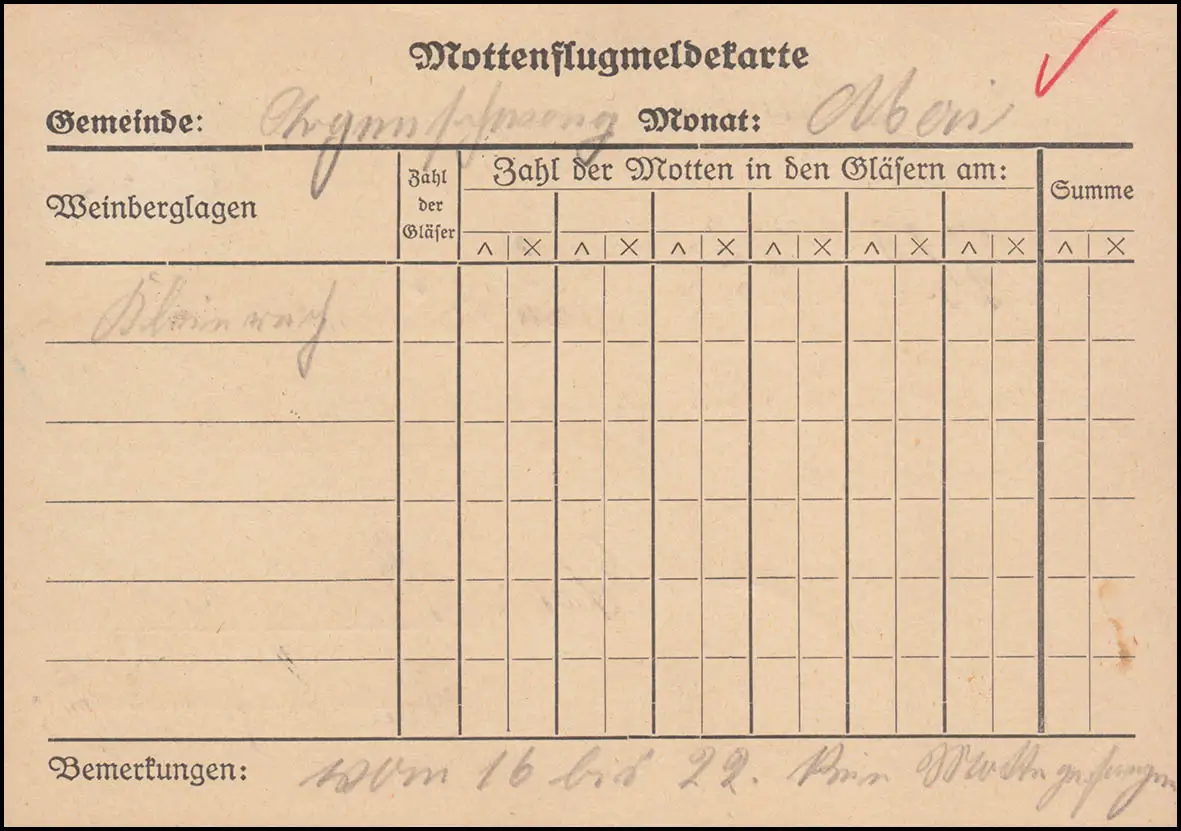 Mottenflugmeldekarte
Gemeinde: Monat: Mai
Weinberglagen
Zahl der Gläser
Zahl der Motten in den Gläsern am:
Summe
^ X ^ X ^ X ^ X ^ X ^ X ^ X
Bemerkungen: vom 16 bis 22. kein Motte gefangen